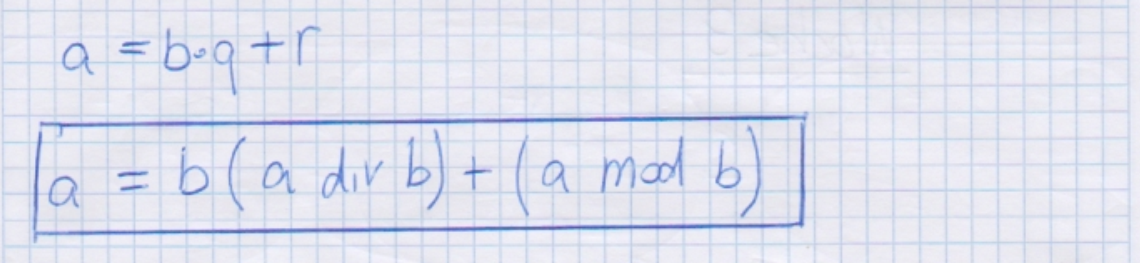 a = b·q + r
a = b ( a div b ) + ( a mod b )